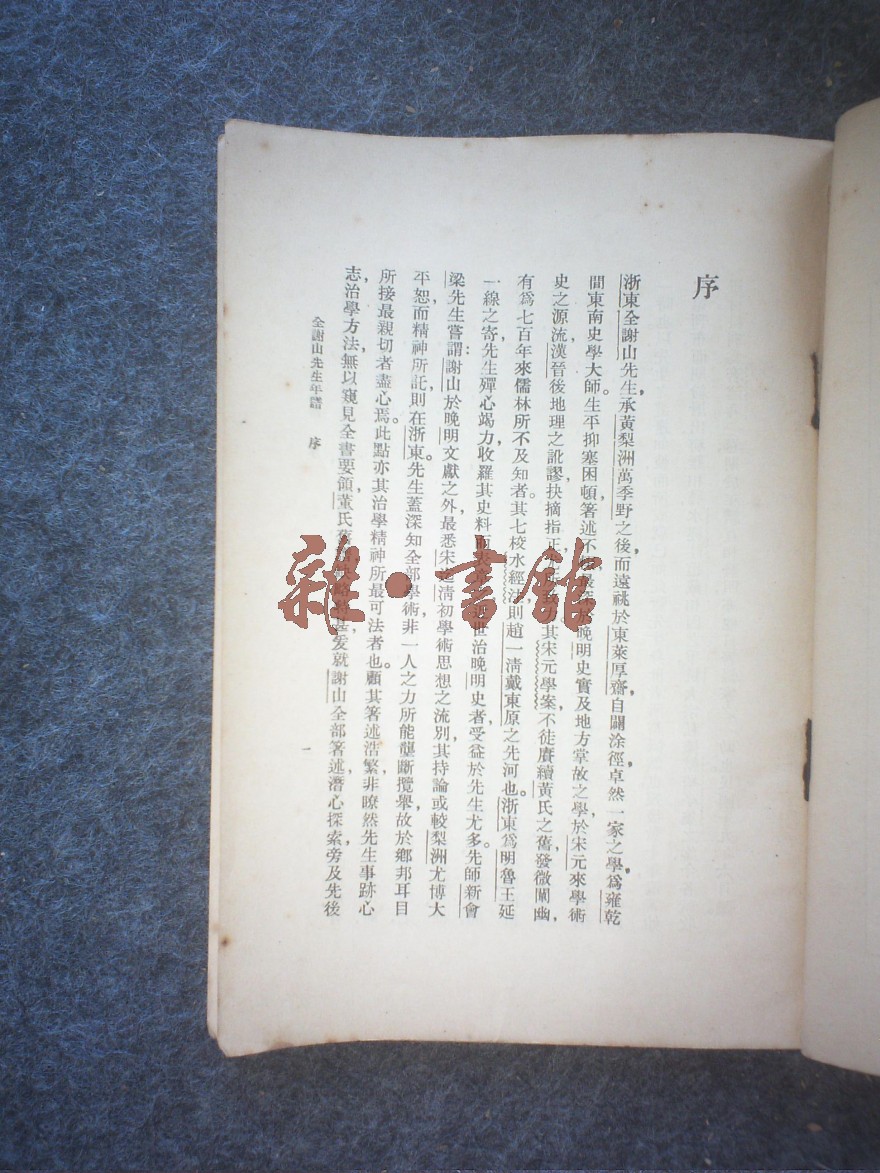 序
浙東全謝山先生，承黃梨洲萬季野之後，而遠祧於東萊厚齋，自闢涂徑，卓然一家之學，爲雍乾
間東南史學大師。生平抑塞困頓，著述不晚明史實及地方掌故之學，於宋元來學術
史之源流，漢晉後地理之訛謬，抉摘指正，其宋元學案，不徒賡續黃氏之舊，發微闡幽，
有爲七百年來儒林所不及知者。其七校水經注，則趙一清戴東原之先河也。浙東爲明魯王延
一線之寄，先生殫心竭力，收羅其史料，世治晚明史者，受益於先生尤多。先師新會
梁先生嘗謂：謝山於晚明文獻之外，最悉宋清初學術思想之流別，其持論或較梨洲尤博大
平恕，而精神所託，則在浙東。先生蓋深知全部學術，非一人之力所能壟斷攬舉，故於鄉邦耳目
所接最親切者盡心焉。此點亦其治學精神所最可法者也。顧其著述浩繁，非瞭然先生事跡心
志，治學方法，無以窺見全書要領，董氏舊略，爰就謝山全部著述，潛心探索，旁及先後
全謝山先生年譜 序
一
雜·書館